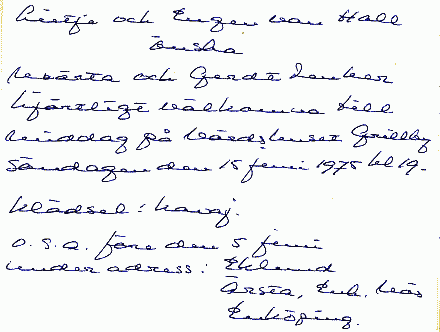 och Eugen van Hall
önska
Märta och Gerdt
hjärtligt välkomna till
middag på Värdshuset Grillby
Söndagen den 15 juni 1975 kl 19-
Klädsel: kavaj.
o.s.a. före den 5 juni
under adress: Eklund
Årsta, Enk. Näs
Enköping.